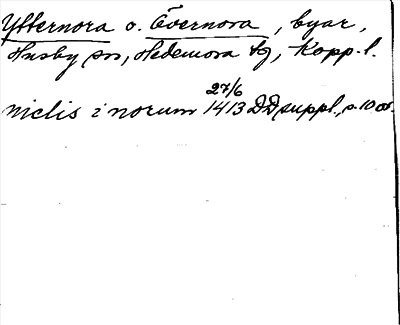 Ytternora o. Övernora, byar,
Husby sn, Hedemora tg, Kopp. l.
27/6
niclis i norum 1413 DD suppl., s. 100.